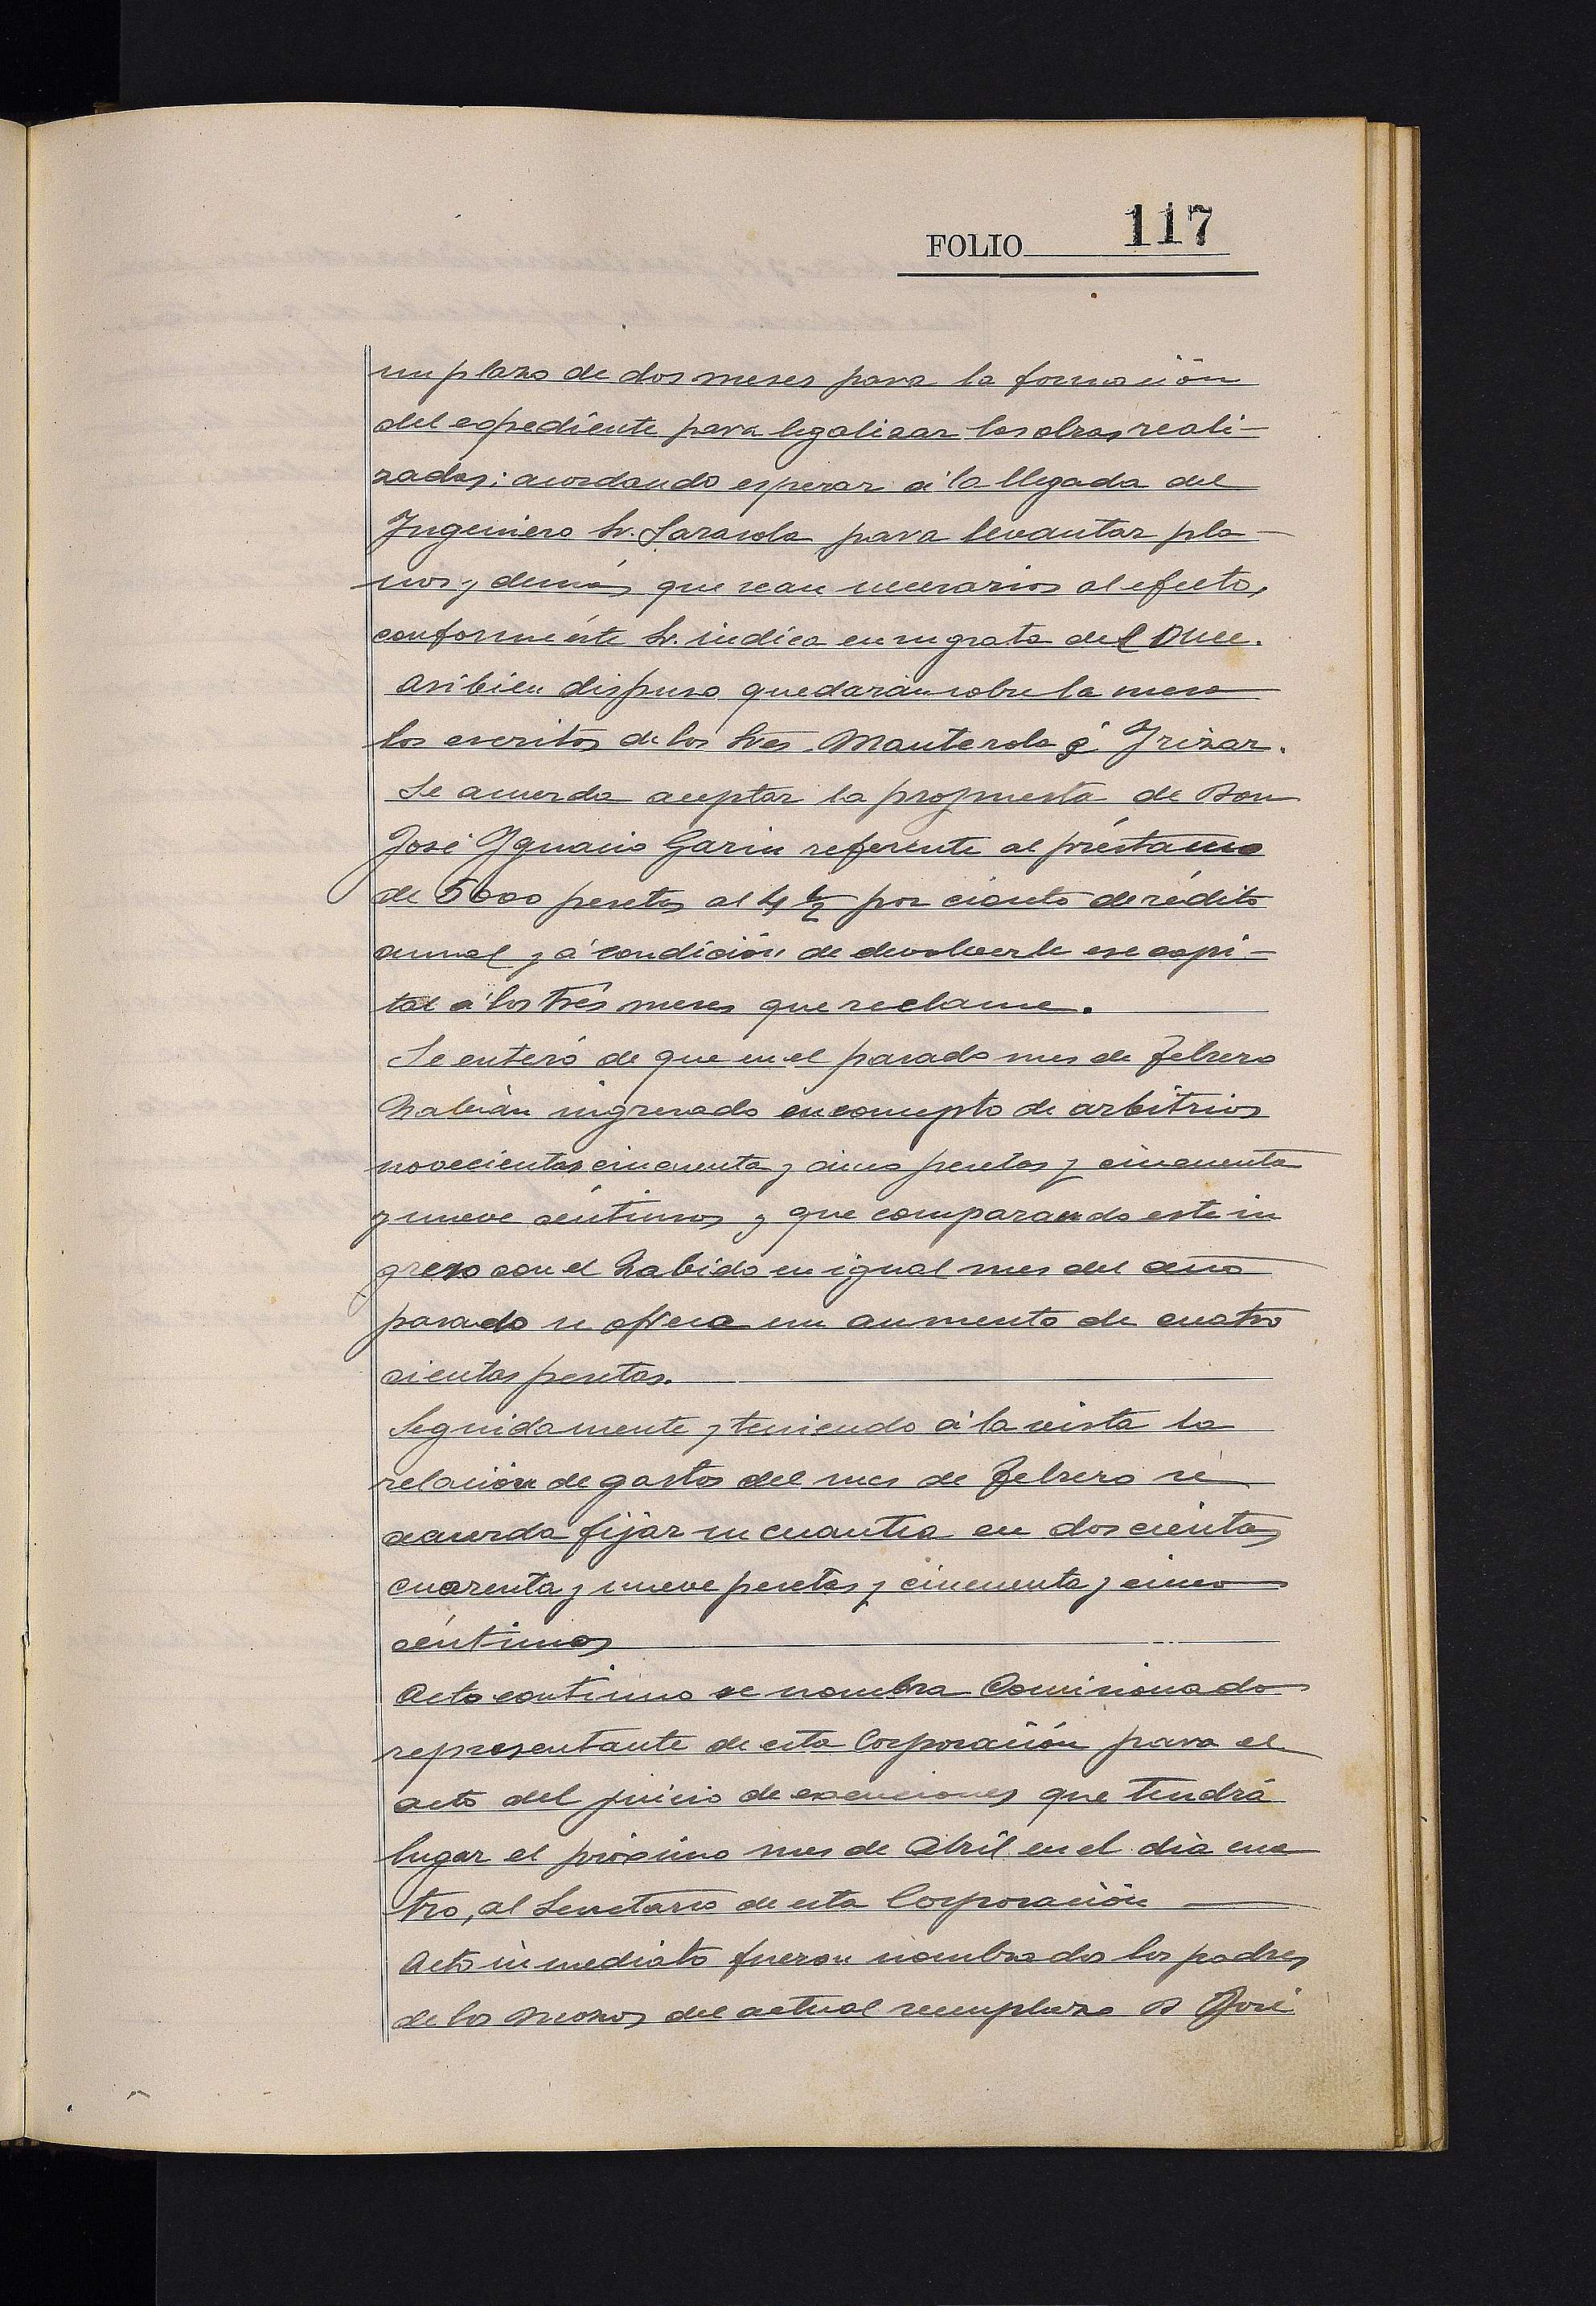 FOLIO 117
un plazo de dos meses para la formación
del expediente para legalizar las obras reali-
zadas; acordando esperar á la llegada del
Ingeniero Sr. Sarasola para levantar pla-
nos y demás que sean necesarios al efecto,
conforme éste Sr. indica en su grata del Once.
Asi bien dispuso quedarán sobre la mesa
los escritos de los Sres. Manterola é Irizar.
Se acuerda aceptar la propuesta de Don
José Ygnacio Garin referente al préstamo
de 5000 pesetas al 4 1/2 por ciento de rédito
anual y á condición de devolverle ese capi-
tal á los trés meses que reclame.
Se enteró de que en el pasado mes de Febrero
habian ingresado en concepto de arbitrios
novecientas cincuenta y cinco pesetas y cincuenta
y nueve céntimos y que comparando este in
greso con el habido en igual mes del año
pasado se ofrece un aumento de cuatro
cientas pesetas.
Seguidamente y teniendo á la vista la
relación de gastos del mes de Febrero se
acuerda fijar su cuantia en doscientas
cuarenta y nueve pesetas y cincuenta y cinco
céntimos
Acto continuo se nombra Comisionado
representante de esta Corporación para el
acto del juicio de exenciones que tendrá
lugar el próximo mes de Abril en el dia cua
tro, al Secretario de esta Corporación
Acto inmediato fueron nombrados los padres
de los mozos del actual reemplazo D José